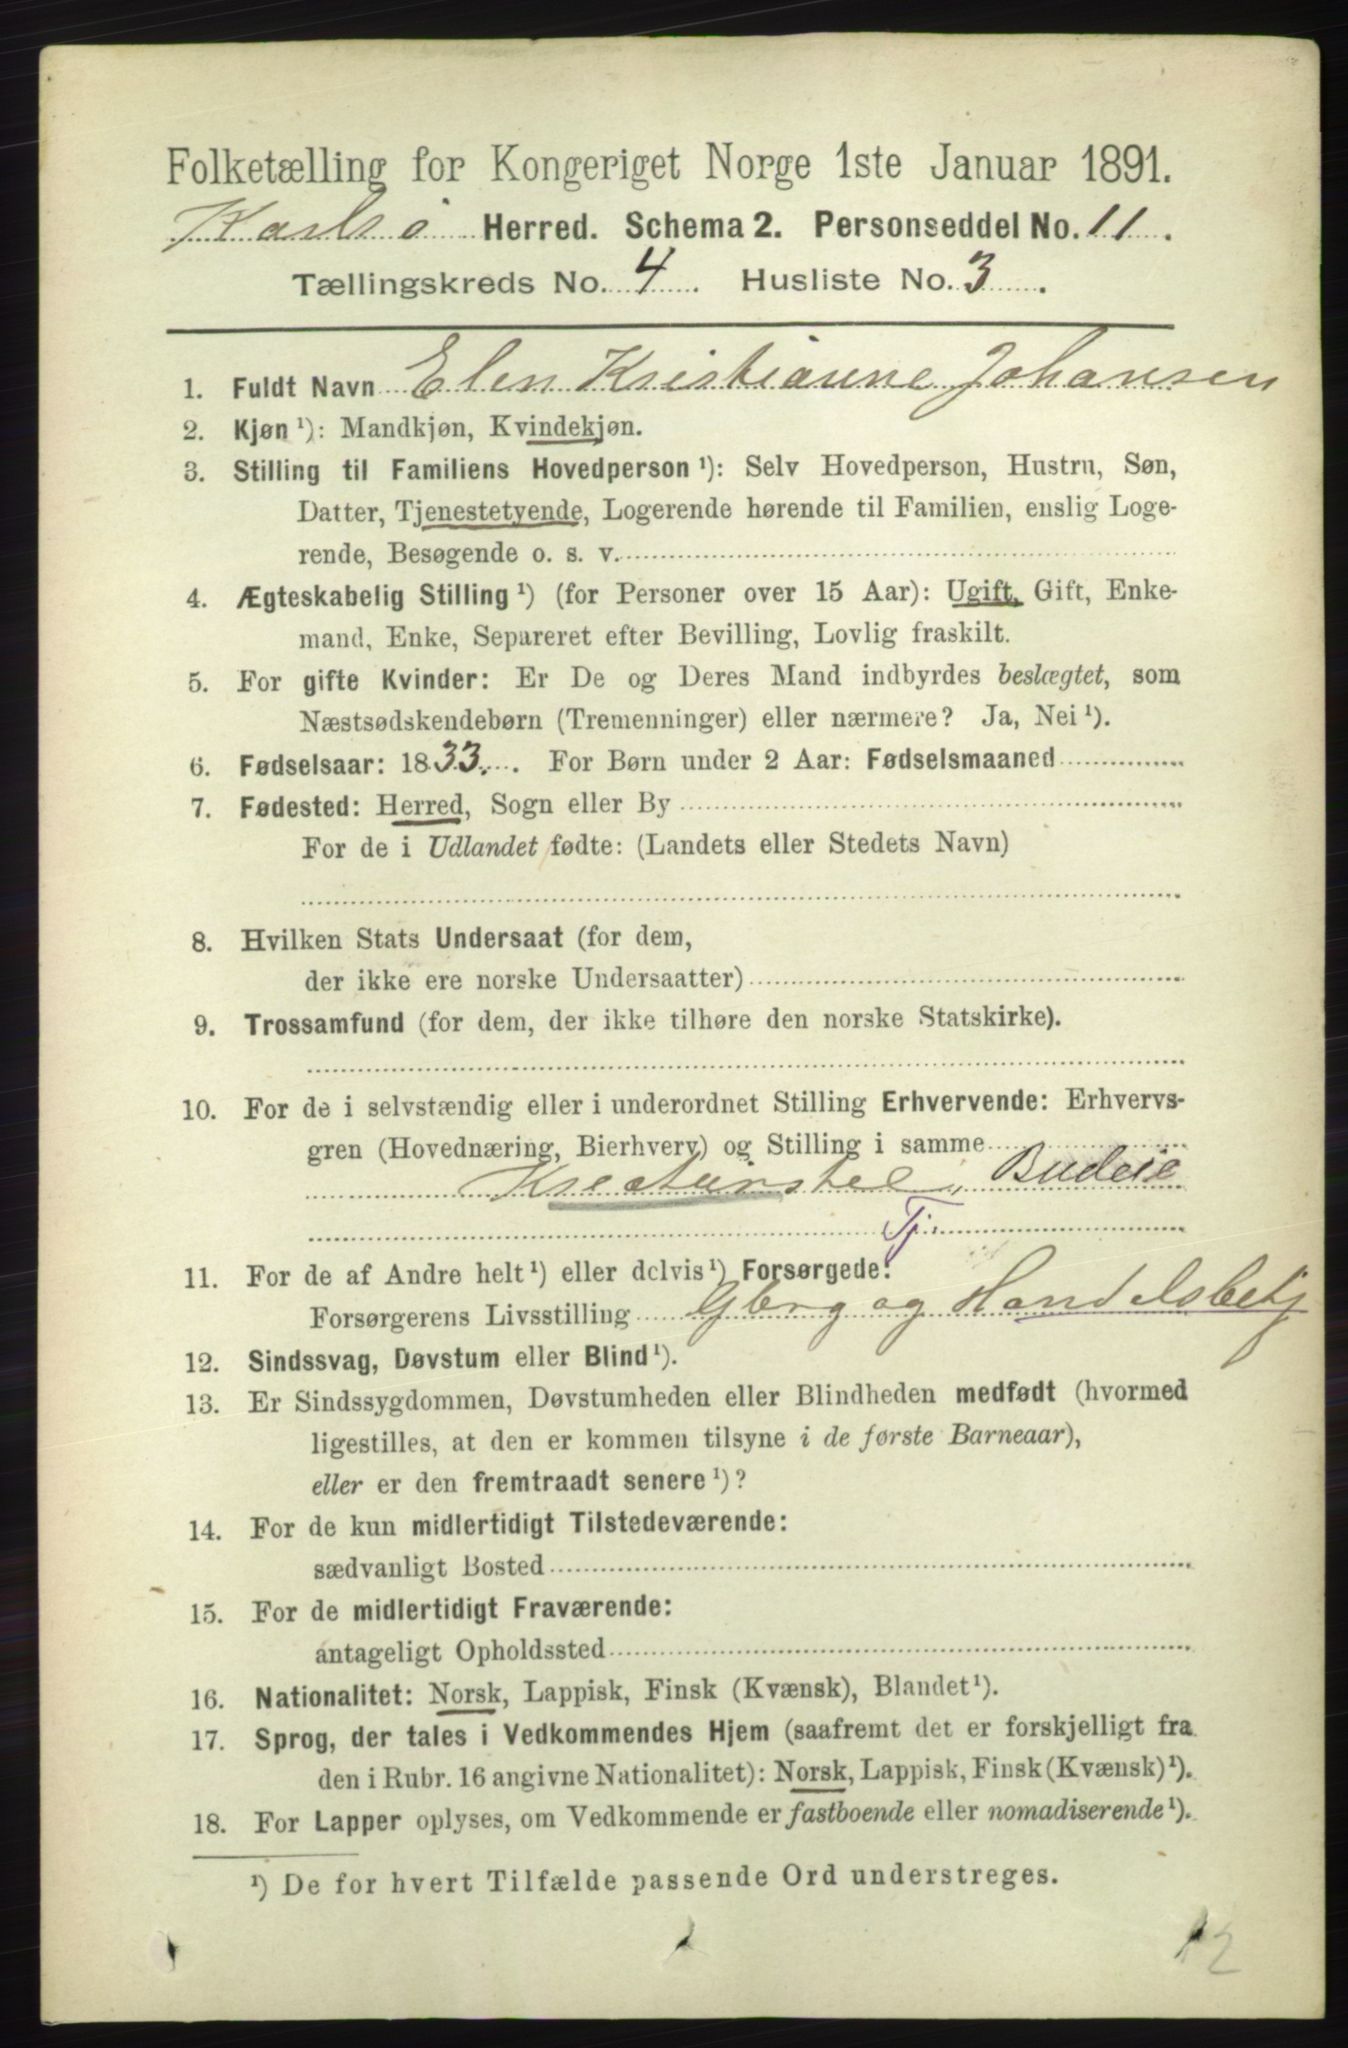 Folketælling for Kongeriget Norge 1ste Januar 1891.
Karlsø Herred. Schema 2. Personseddel No. 11.
Tællingskreds No. 4. Husliste No. 3.
1. Fuldt Navn Elen Kristianne Johansen
2. Kjøn ¹): Mandkjøn, Kvindekjøn.
3. Stilling til Familiens Hovedperson ¹): Selv Hovedperson, Hustru, Søn,
Datter, Tjenestetyende, Logerende hørende til Familien, enslig Loge-
rende, Besøgende o. s. v.
4. Ægteskabelig Stilling ¹) (for Personer over 15 Aar): Ugift, Gift, Enke-
mand, Enke, Separeret efter Bevilling, Lovlig fraskilt.
5. For gifte Kvinder: Er De og Deres Mand indbyrdes beslægtet, som
Næstsødskendebørn (Tremenninger) eller nærmere? Ja, Nei ¹).
6. Fødselsaar: 1833. For Børn under 2 Aar: Fødselsmaaned
7. Fødested: Herred, Sogn eller By
For de i Udlandet fødte: (Landets eller Stedets Navn)
8. Hvilken Stats Undersaat (for dem,
der ikke ere norske Undersaatter)
9. Trossamfund (for dem, der ikke tilhøre den norske Statskirke).
10. For de i selvstændig eller i underordnet Stilling Erhvervende: Erhvervs-
gren (Hovednæring, Bierhverv) og Stilling i samme
Kreaturstel, Budeie
Tj.
11. For de af Andre helt ¹) eller delvis ¹) Forsørgede:
Forsørgerens Livsstilling Gbrg og Handelsbetj
12. Sindssvag, Døvstum eller Blind ¹).
13. Er Sindssygdommen, Døvstumheden eller Blindheden medfødt (hvormed
ligestilles, at den er kommen tilsyne i de første Barneaar),
eller er den fremtraadt senere ¹)?
14. For de kun midlertidigt Tilstedeværende:
sædvanligt Bosted
15. For de midlertidigt Fraværende:
antageligt Opholdssted
16. Nationalitet: Norsk, Lappisk, Finsk (Kvænsk), Blandet ¹).
17. Sprog, der tales i Vedkommendes Hjem (saafremt det er forskjelligt fra
den i Rubr. 16 angivne Nationalitet): Norsk, Lappisk, Finsk (Kvænsk) ¹).
18. For Lapper oplyses, om Vedkommende er fastboende eller nomadiserende ¹).
¹) De for hvert Tilfælde passende Ord understreges.